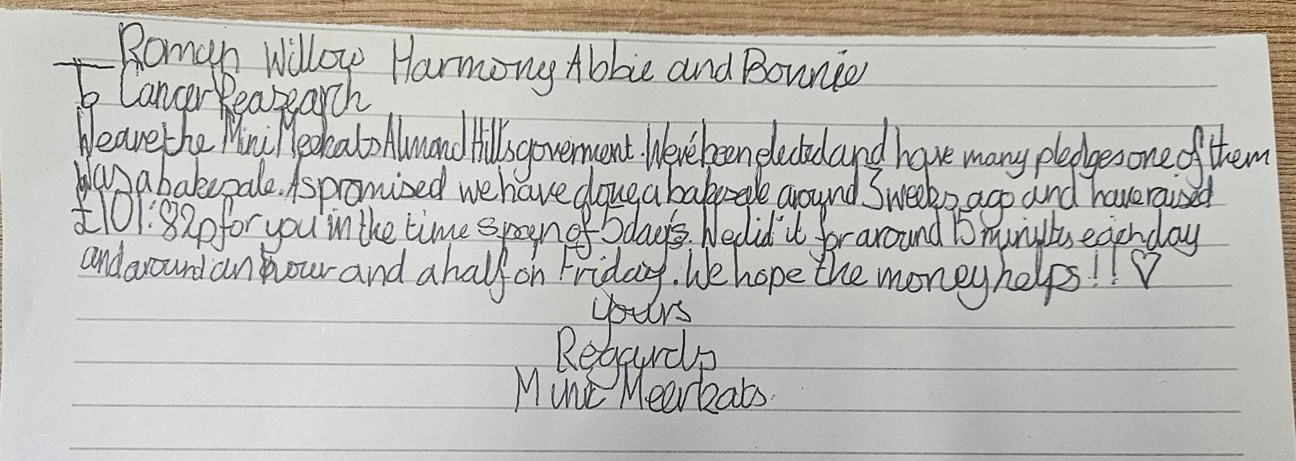 Roman Willow Harmony Abbie and Bonnie
to Cancer Reasearch
We are the Mini Meekats Almond Hill's goverment. We've been elected and have many pledges one of them
was a bakesale. As promised we have done a bakesale around 3 weeks ago and have raised
£101:82p for you in the time span of 5 day's. We did it for around 15 minutes each day
and around an hour and a half on Friday. We hope the money helps!! ♡
Yours
Regards
Mini Meerkats.